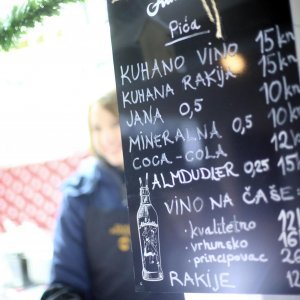 Pića
KUHANO VINO 15 kn
KUHANA RAKIJA 15 kn
JANA 0,5 10 kn
MINERALNA 0,5 10
COCA-COLA 12
ALMDUDLER 0,25 15
VINO NA ČAŠE
• kvalitetno 12
• vrhunsko 16
• principovac 26
RAKIJE 12